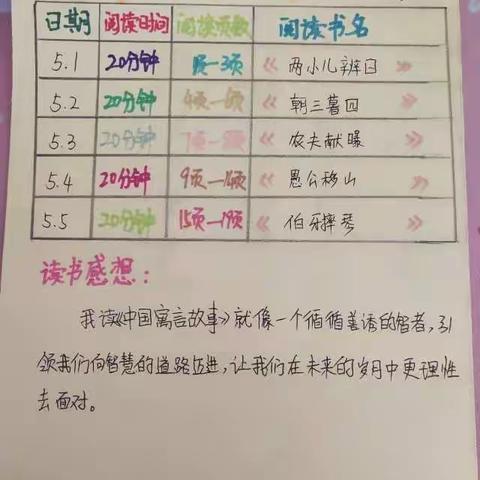 日期 阅读时间 阅读页数 阅读书名
5.1 20分钟 1页—3页 《两小儿辨日》
5.2 20分钟 4页—6页 《朝三暮四》
5.3 20分钟 7页— 《农夫献曝》
5.4 20分钟 9页— 《愚公移山》
5.5 20分钟 15页—19页 《伯牙摔琴》
读书感想：
我读《中国寓言故事》就像一个循循善诱的智者，引
领我们向智慧的道路迈进，让我们在未来的岁月中更理性
去面对。